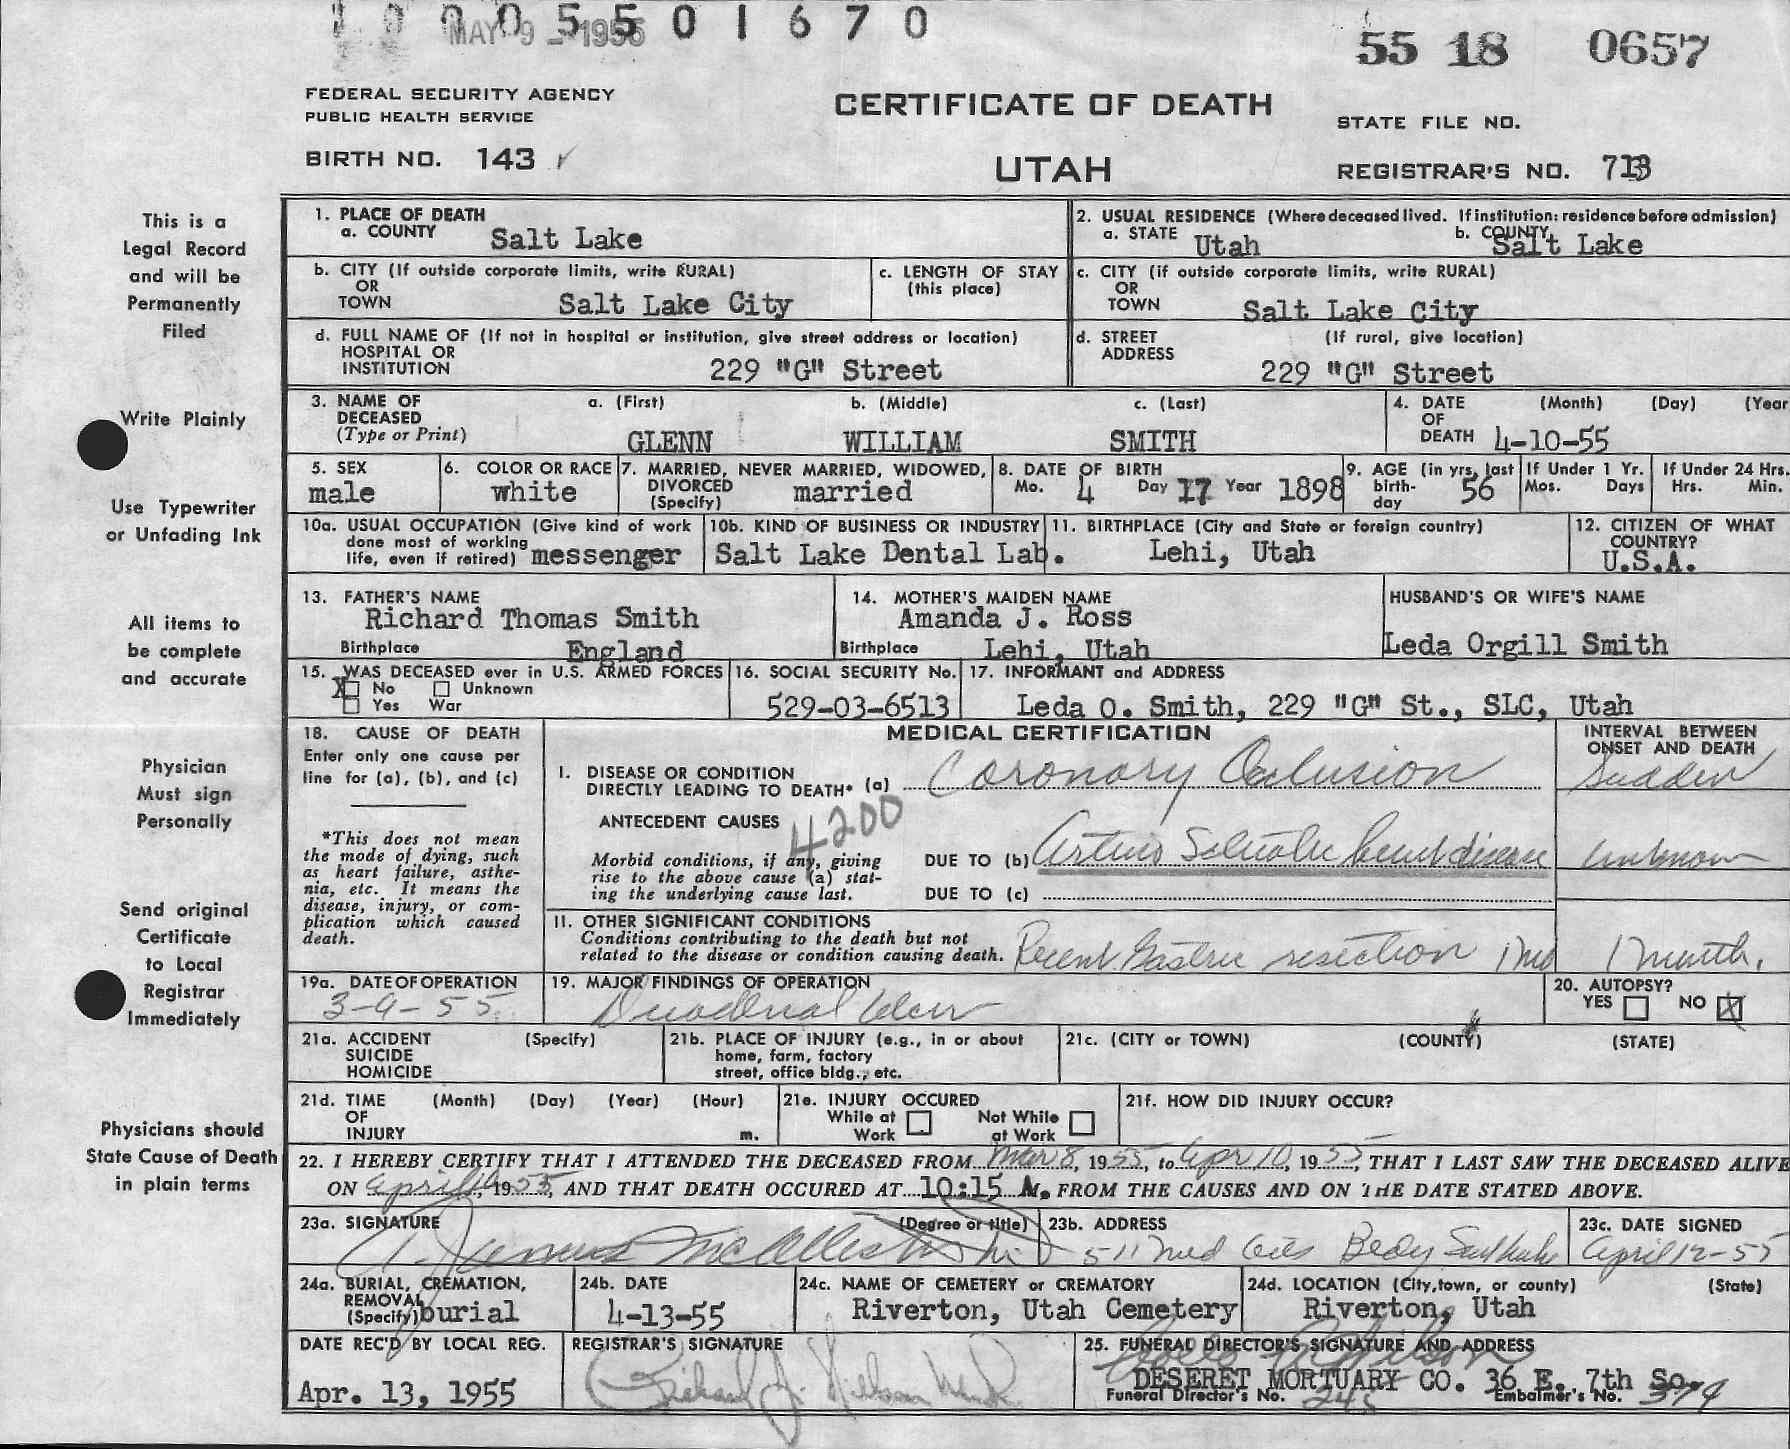 1 0 0 0 5 5 0 1 6 7 0
MAY 9 - 1955
55 18 0657
FEDERAL SECURITY AGENCY
PUBLIC HEALTH SERVICE
CERTIFICATE OF DEATH
STATE FILE NO.
BIRTH NO. 143
UTAH
REGISTRAR'S NO. 713
This is a
Legal Record
and will be
Permanently
Filed
Write Plainly
Use Typewriter
or Unfading Ink
All items to
be complete
and accurate
Physician
Must sign
Personally
Send original
Certificate
to Local
Registrar
Immediately
Physicians should
State Cause of Death
in plain terms
1. PLACE OF DEATH
a. COUNTY Salt Lake
2. USUAL RESIDENCE (Where deceased lived. If institution: residence before admission)
a. STATE Utah b. COUNTY Salt Lake
b. CITY (If outside corporate limits, write RURAL)
OR
TOWN Salt Lake City
c. LENGTH OF STAY
(this place)
c. CITY (if outside corporate limits, write RURAL)
OR
TOWN Salt Lake City
d. FULL NAME OF (If not in hospital or institution, give street address or location)
HOSPITAL OR
INSTITUTION 229 "G" Street
d. STREET (If rural, give location)
ADDRESS
229 "G" Street
3. NAME OF
DECEASED
(Type or Print)
a. (First) b. (Middle) c. (Last)
GLENN WILLIAM SMITH
4. DATE (Month) (Day) (Year
OF
DEATH 4-10-55
5. SEX
male
6. COLOR OR RACE
white
7. MARRIED, NEVER MARRIED, WIDOWED,
DIVORCED married
(Specify)
8. DATE OF BIRTH
Mo. 4 Day 17 Year 1898
9. AGE (in yrs. last
birth-
day 56
If Under 1 Yr.
Mos. Days
If Under 24 Hrs.
Hrs. Min.
10a. USUAL OCCUPATION (Give kind of work
done most of working
life, even if retired) messenger
10b. KIND OF BUSINESS OR INDUSTRY
Salt Lake Dental Lab.
11. BIRTHPLACE (City and State or foreign country)
Lehi, Utah
12. CITIZEN OF WHAT
COUNTRY?
U.S.A.
13. FATHER'S NAME
Richard Thomas Smith
Birthplace England
14. MOTHER'S MAIDEN NAME
Amanda J. Ross
Birthplace Lehi, Utah
HUSBAND'S OR WIFE'S NAME
Leda Orgill Smith
15. WAS DECEASED ever in U.S. ARMED FORCES
X No Unknown
Yes War
16. SOCIAL SECURITY No.
529-03-6513
17. INFORMANT and ADDRESS
Leda O. Smith, 229 "G" St., SLC, Utah
18. CAUSE OF DEATH
Enter only one cause per
line for (a), (b), and (c)
*This does not mean
the mode of dying, such
as heart failure, asthe-
nia, etc. It means the
disease, injury, or com-
plication which caused
death.
MEDICAL CERTIFICATION
INTERVAL BETWEEN
ONSET AND DEATH
I. DISEASE OR CONDITION
DIRECTLY LEADING TO DEATH* (a) Coronary Occlusion Sudden
ANTECEDENT CAUSES 4200
Morbid conditions, if any, giving
rise to the above cause (a) stat-
ing the underlying cause last.
DUE TO (b) Arterio Sclerotic heart disease unknown
DUE TO (c)
II. OTHER SIGNIFICANT CONDITIONS
Conditions contributing to the death but not
related to the disease or condition causing death. Recent Gastric resection 1 mo 1 month.
19a. DATE OF OPERATION
3-9-55
19. MAJOR FINDINGS OF OPERATION
Duodenal Ulcer
20. AUTOPSY?
YES NO X
21a. ACCIDENT (Specify)
SUICIDE
HOMICIDE
21b. PLACE OF INJURY (e.g., in or about
home, farm, factory
street, office bldg., etc.
21c. (CITY or TOWN) (COUNTY) (STATE)
21d. TIME (Month) (Day) (Year) (Hour)
OF
INJURY m.
21e. INJURY OCCURED
While at Not While
Work at Work
21f. HOW DID INJURY OCCUR?
22. I HEREBY CERTIFY THAT I ATTENDED THE DECEASED FROM Mar 8, 1955, to Apr 10, 1955, THAT I LAST SAW THE DECEASED ALIVE
ON April, 1955, AND THAT DEATH OCCURED AT 10:15 A. FROM THE CAUSES AND ON THE DATE STATED ABOVE.
23a. SIGNATURE (Degree or title)
McAllister
23b. ADDRESS
511 Med Bldg
23c. DATE SIGNED
April 12-55
24a. BURIAL, CREMATION,
REMOVAL
(Specify) burial
24b. DATE
4-13-55
24c. NAME OF CEMETERY or CREMATORY
Riverton, Utah Cemetery
24d. LOCATION (City, town, or county) (State)
Riverton, Utah
DATE REC'D BY LOCAL REG.
Apr. 13, 1955
REGISTRAR'S SIGNATURE
Richard J.
25. FUNERAL DIRECTOR'S SIGNATURE AND ADDRESS
DESERET MORTUARY CO. 36 E. 7th So.
Funeral Director's No. 245 Embalmer's No. 374